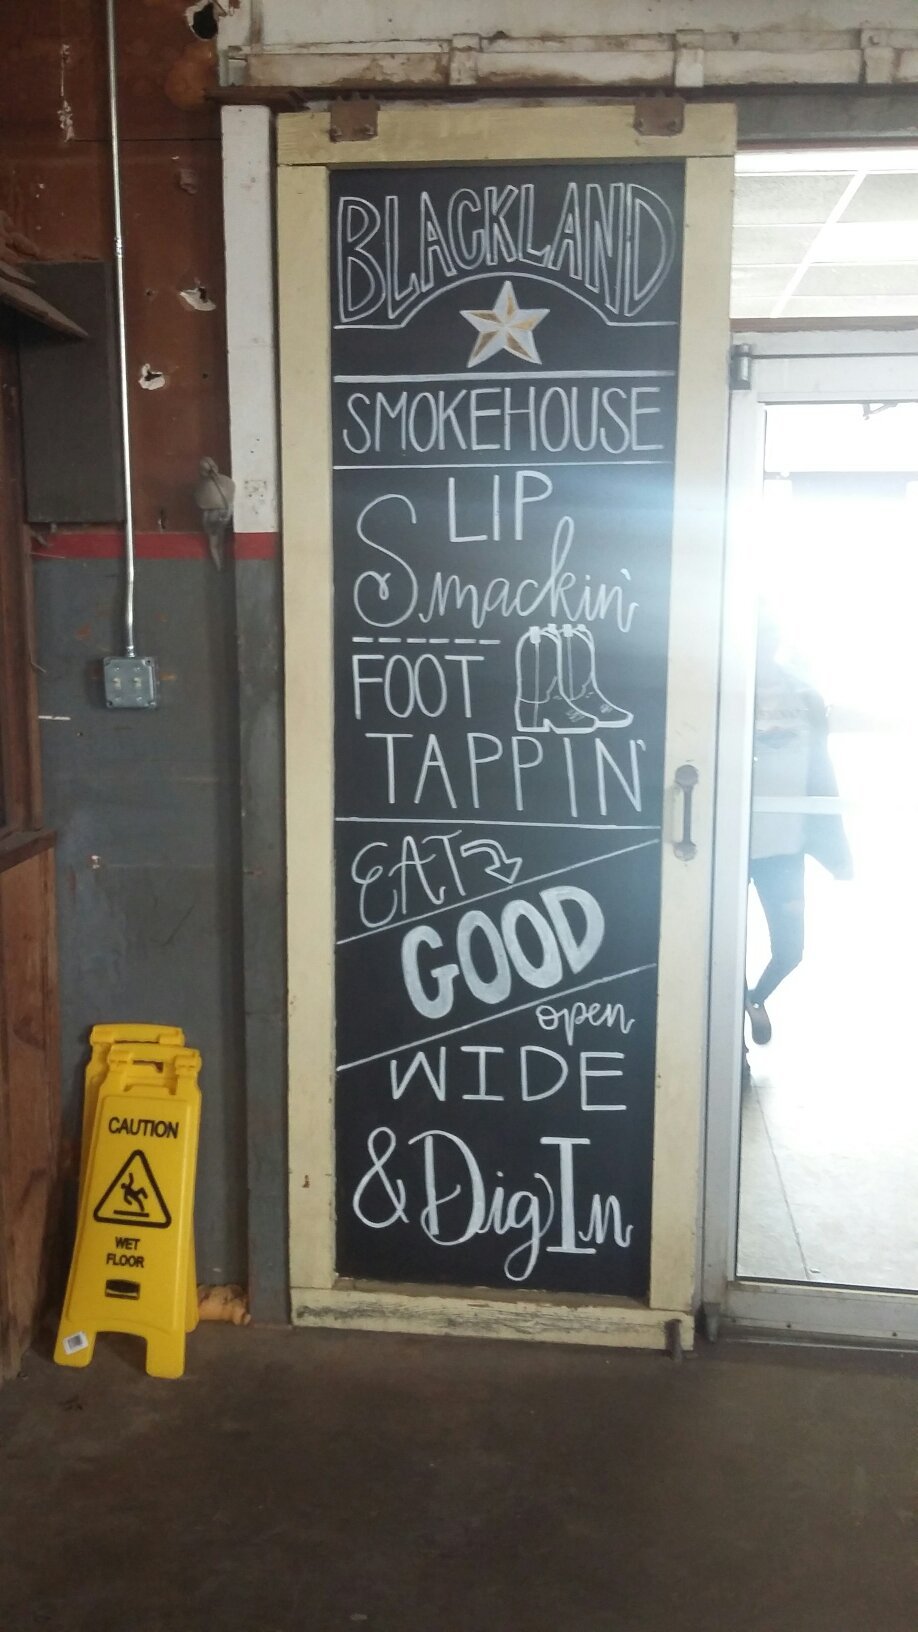 BLACKLAND
SMOKEHOUSE
LIP
Smackin'
FOOT
TAPPIN'
EAT
GOOD
open
WIDE
& Dig In
CAUTION
WET
FLOOR